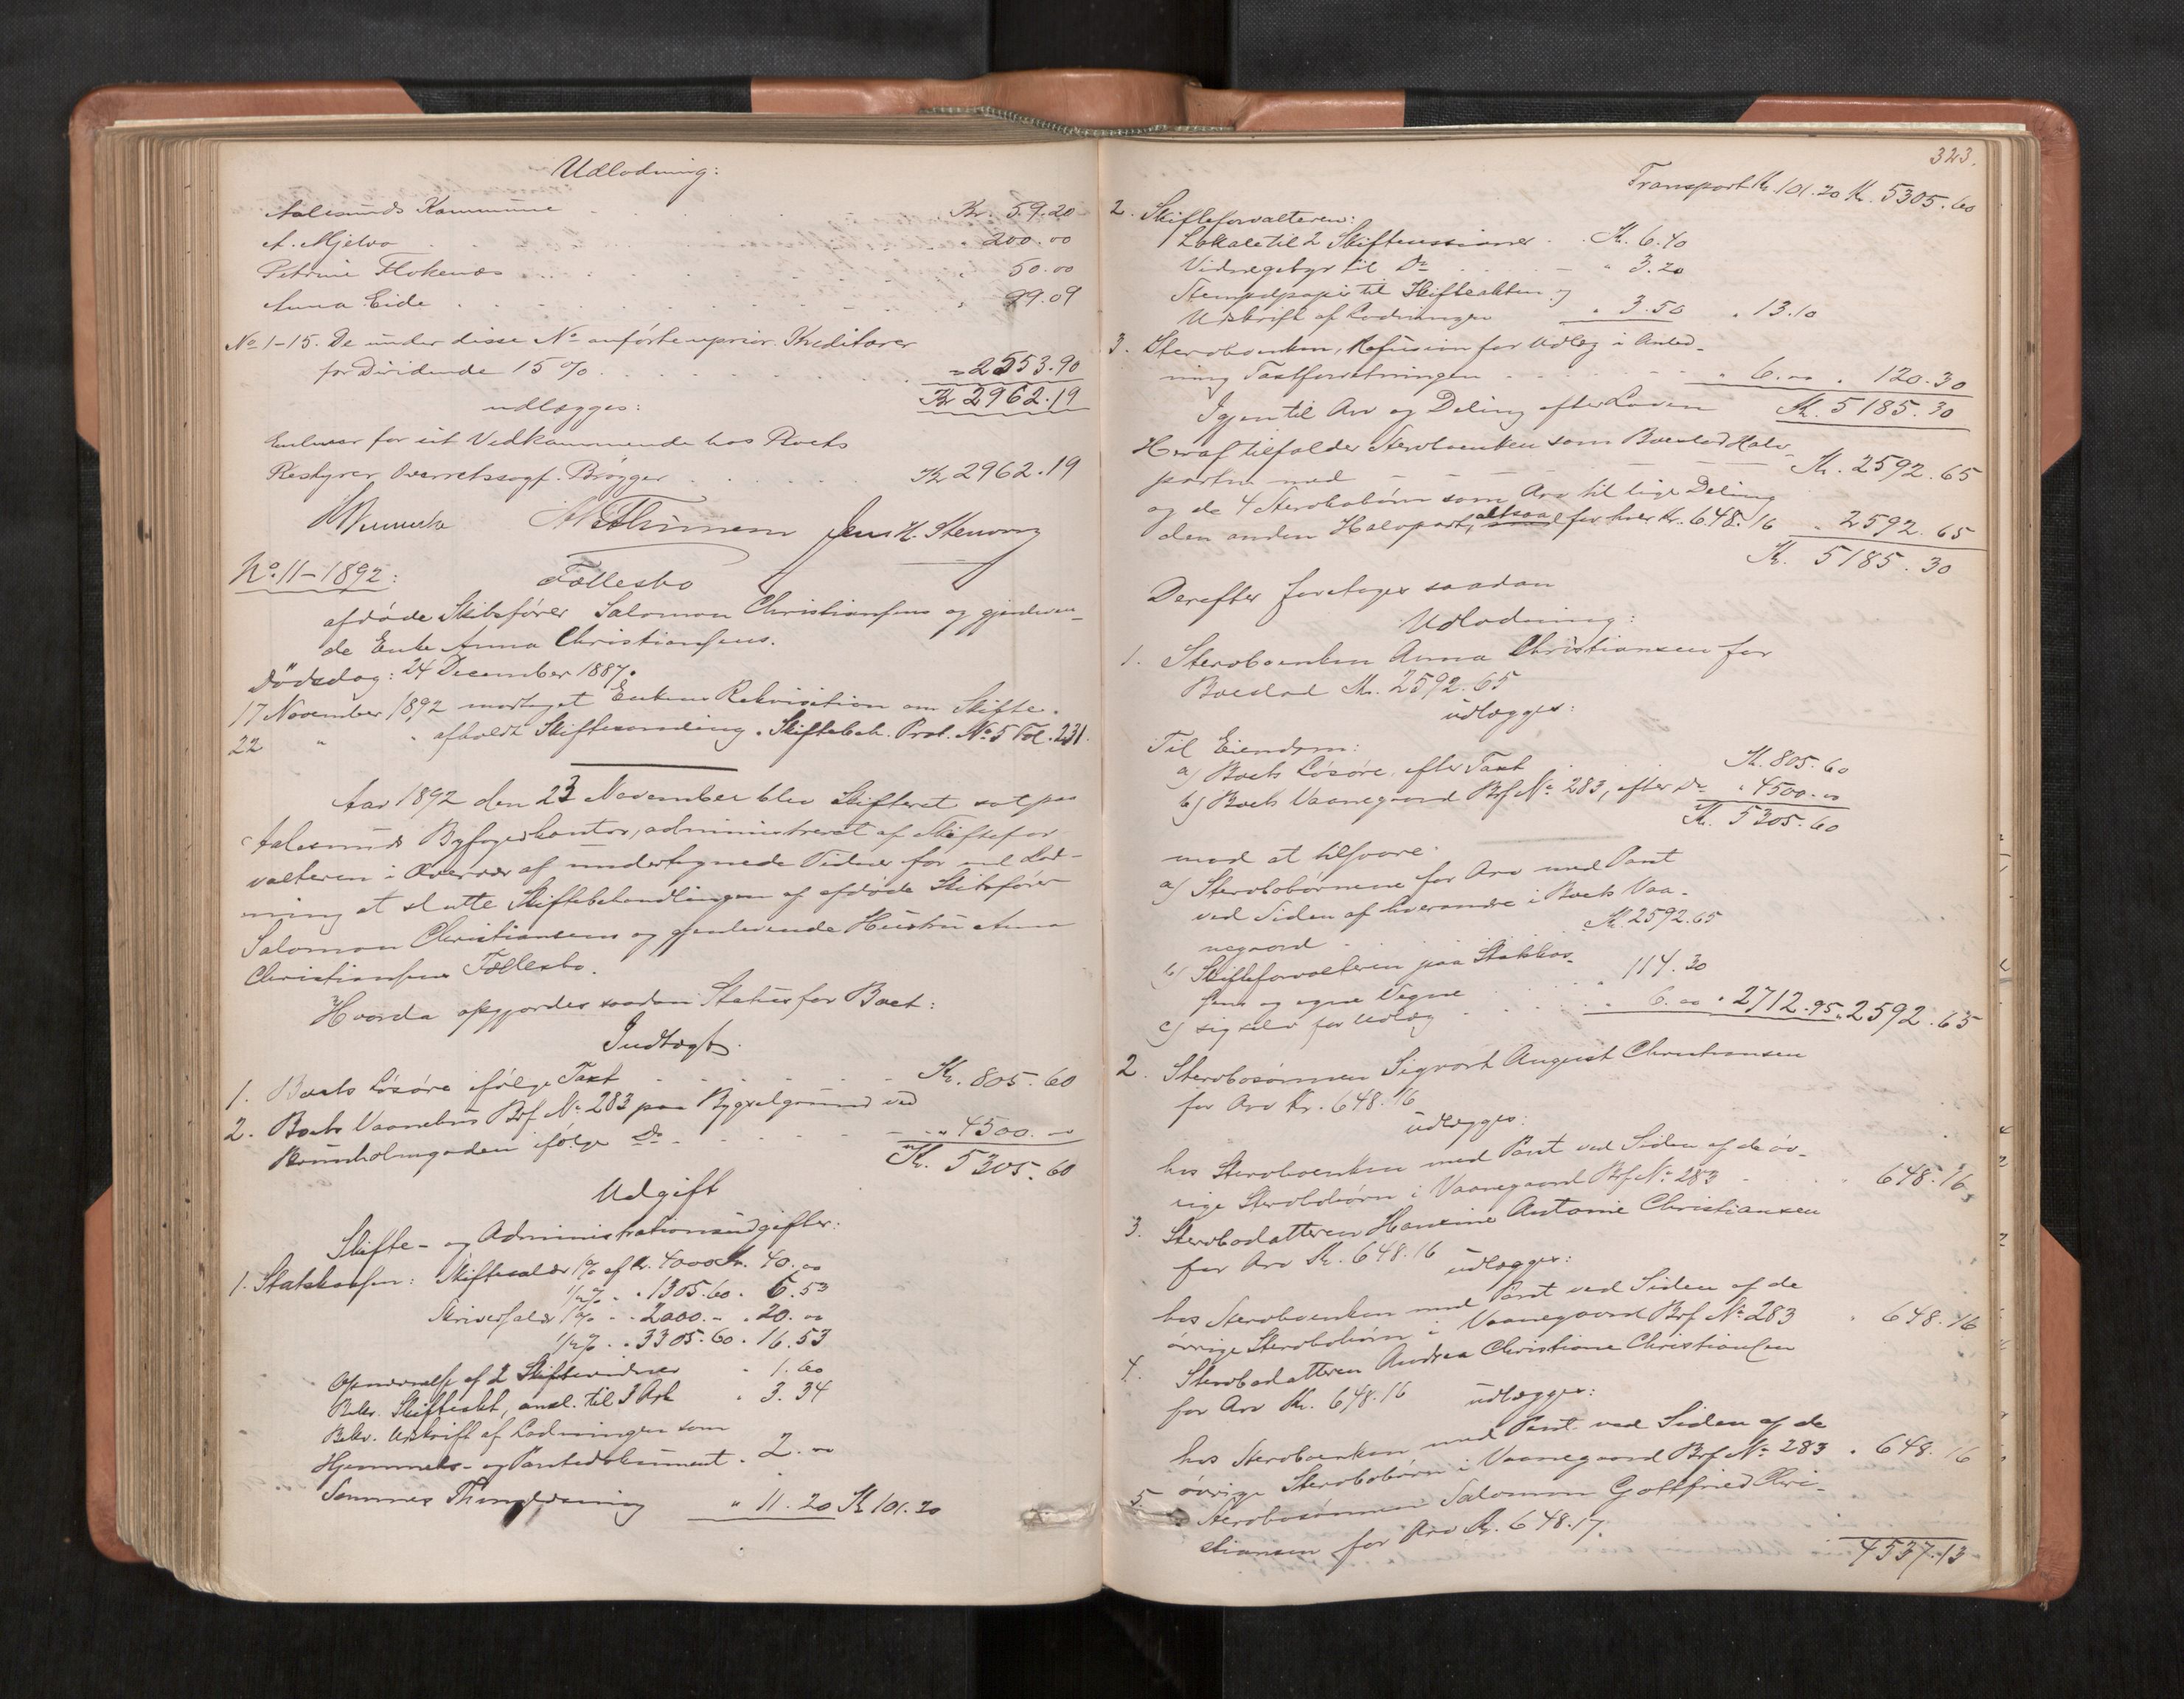 Udlodning:
Aalesunds Kommune . . . Kr. 59.20
A. Mjelva . . . " 200.00
Petrine Flokenæs . . . " 50.00
Anna Eide . . . " 99.09
No 1-15. De under disse No anførte uprior. Kreditorer
for Dividende 15 % . . . " 2553.90
Kr 2962.19
udlægges:
Enhver for sit Vedkommende hos Boets
Bestyrer, Overretssagf. Brøgger . . . Kr 2962.19
Jens H. Stenvig
No. 11-1892: Fællesbo
afdøde Skibsfører Salomon Christiansens og gjenleven-
de Enke Anna Christiansens.
Dødsdag: 24 December 1887.
17 November 1892 modtaget Enkens Rekvisition om Skifte.
22 " " afholdt Skiftesamling. Skiftebeh. Prot. No 5 Fol. 231.
Aar 1892 den 23 November blev Skifteret sat paa
Aalesunds Byfogedkontor, administreret af Skiftefor-
valteren i Overvær af undertegnede Vidner for ved Lod-
ning at slutte Skiftebehandlingen af afdøde Skibsfører
Salomon Christiansens og gjenlevende Hustru Anna
Christiansens Fællesbo.
Hvorda opgjordes saadan Status for Boet:
Indtægt.
1. Boets Løsøre ifølge Taxt . . . Kr. 805.60
2. Boets Vaanehus Brf. No 283 paa Bygselgrund ved
Bruunholmgaden ifølge Do . . . " 4500.00
Kr. 5305.60
Udgift
Skifte- og Administrationsudgifter:
1. Statskassen: Skiftesalær 1% af Kr. 4000 Kr. 40.00
1/2% " " 1305.60 " 6.53
Skriversalær 1% " " 2000.- " 20.00
1/2% " " 3305.60 " 16.53
Opnævnelse af 2 Skiftevidner " 1.60
Bekr. Skifteakt, ansl. til 3 Ark " 3.34
Bekr. Udskrift af Lodningen som
Hjemmels- og Pantedokument " 2.00
Sammes Thinglæsning " 11.20 Kr 101.20
323.
Transport Kr. 101.20 Kr. 5305.60
2. Skifteforvalteren:
Lokale til 2 Skiftesessioner . . Kr. 6.40
Vidnegebyr til Do . . . " 3.20
Stempelpapir til Skifteakten og
Udskrift af Lodningen " 3.50 " 13.10
3. Sterboenken, Refusion for Udlæg i Anled-
ning Taxtforretningen . . . " 6.00 " 120.30
Igjen til Arv og Deling efter Loven Kr. 5185.30
Heraf tilfalder Sterboenken som Boeslod Halv-
parten med - - - Kr. 2592.65
og de 4 Sterbobørn som Arv til lige Deling
den anden Halvpart, altsaa for hver Kr. 648.16 " 2592.65
Kr. 5185.30
Derefter foretoges saadan
Udlodning:
1. Sterboenken Anna Christiansen for
Boeslod Kr. 2592.65
udlægges:
Til Eiendom:
a) Boets Løsøre, efter Taxt . . Kr. 805.60
b) Boets Vaanegaard Brf No 283, efter Do " 4500.00
Kr. 5305.60
mod at tilsvare:
a) Sterbobørnene for Arv med Pant
ved Siden af hverandre i Boets Vaa-
negaard . . . Kr. 2592.65
b) Skifteforvalteren paa Statskas-
sens og egne Vegne . . . " 114.30
c) sig selv for Udlæg . . . " 6.00 " 2712.95 " 2592.65
2. Sterbosønnen Sigvart August Christiansen
for Arv Kr. 648.16
udlægges:
hos Sterboenken med Pant ved Siden af de øv-
rige Sterbobørn i Vaanegaard Brf No 283 . " 648.16
3. Sterbodatteren Hansine Antonie Christiansen
for Arv Kr. 648.16 udlægges:
hos Sterboenken med Pant ved Siden af de
øvrige Sterbobørn i Vaanegaard Brf No 283 " 648.16
4. Sterbodatteren Andrea Christiane Christiansen
for Arv Kr. 648.16 udlægges:
hos Sterboenken med Pant ved Siden af de
øvrige Sterbobørn i Vaanegaard Brf No 283 " 648.16
5. Sterbosønnen Salomon Gottfried Chri-
stiansen for Arv Kr. 648.17.
4537.13